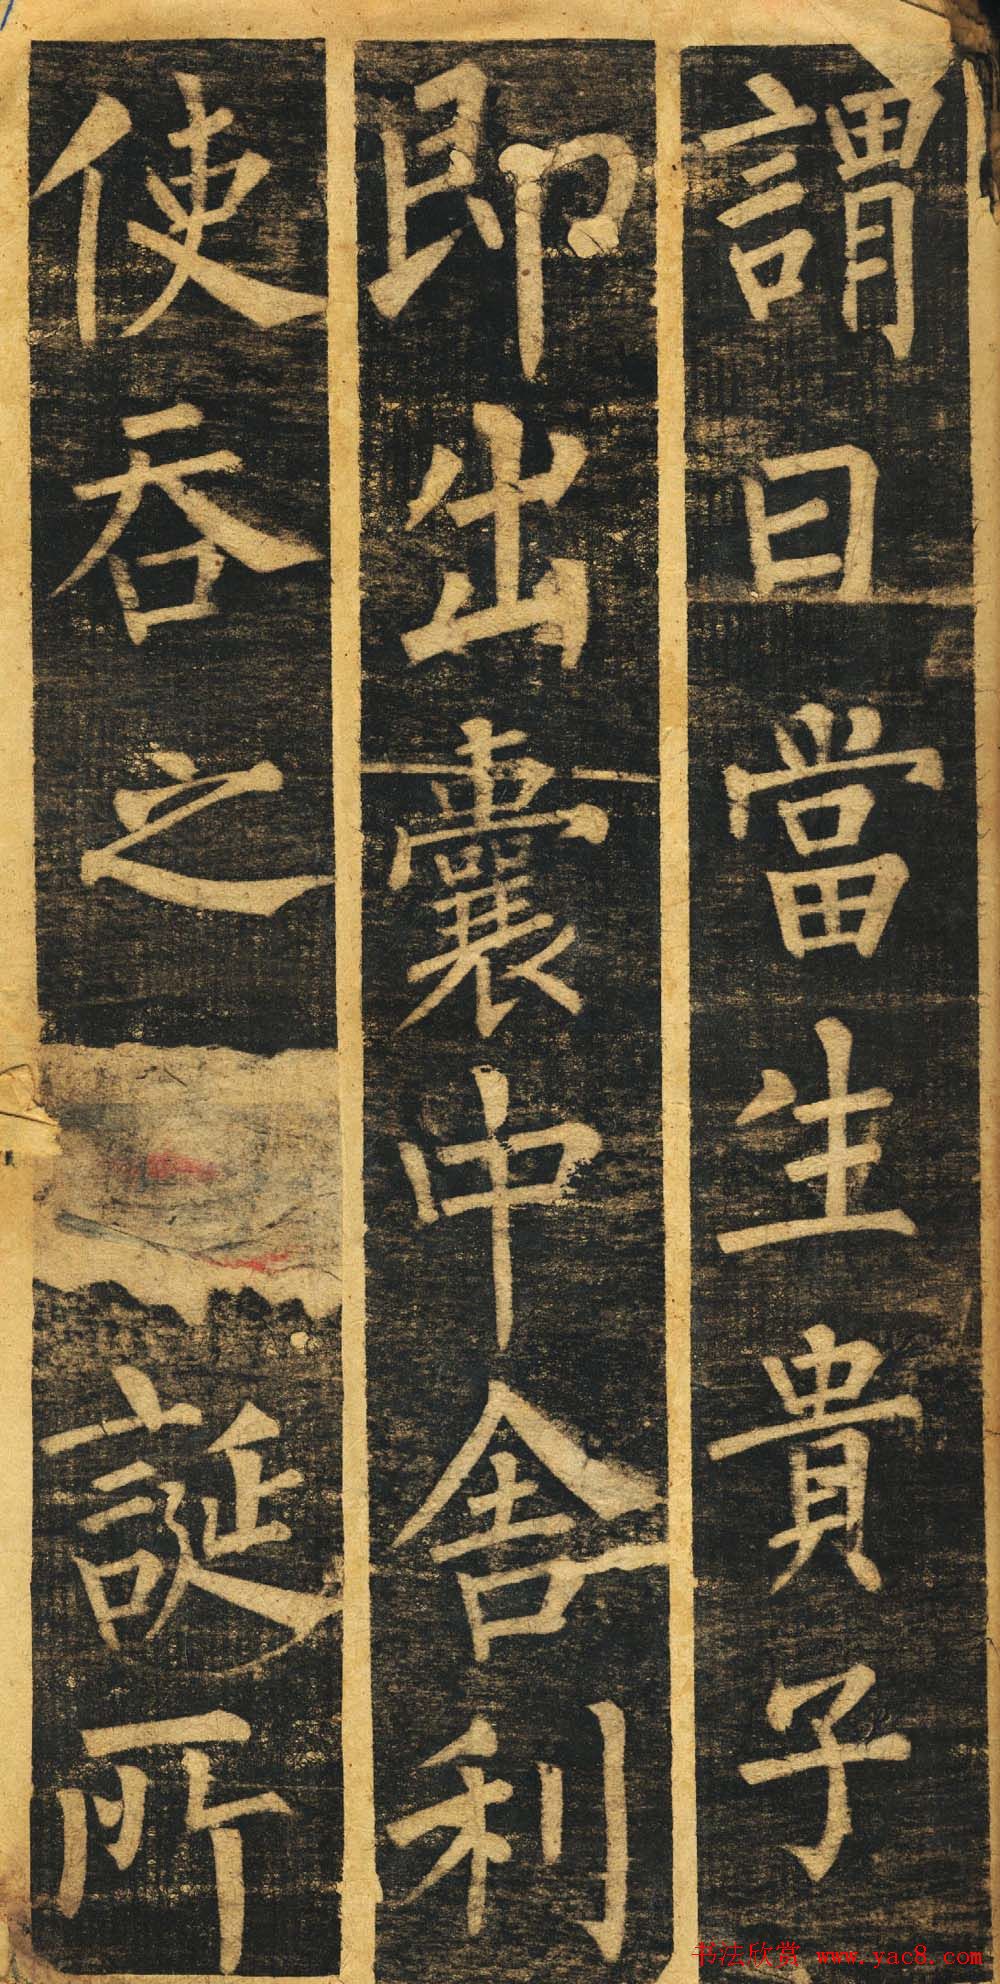 謂曰當生貴子
即出囊中舍利
使吞之誕所
书法欣赏 www.yac8.com